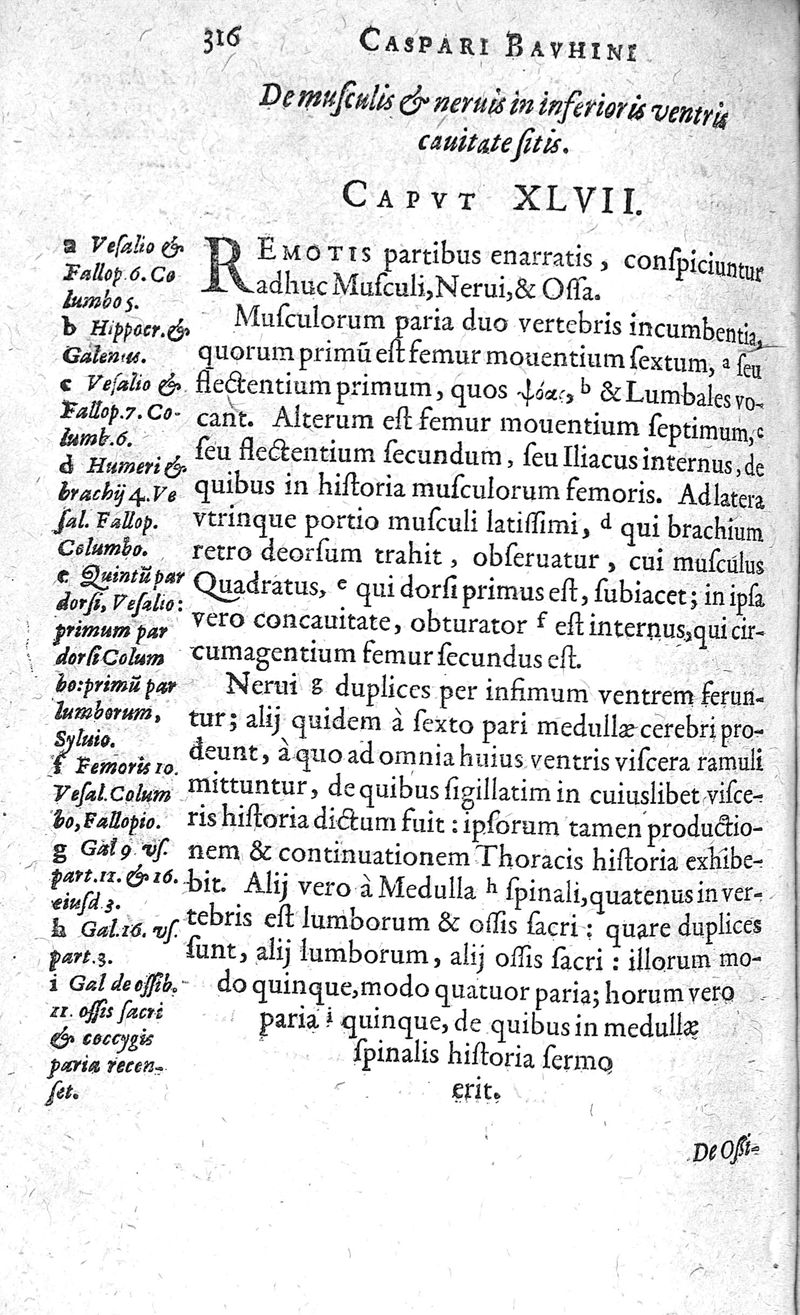 316 CASPARI BAVHINI
De muſculis & neruis in inferioris ventris
cauitate ſitis.
CAPVT XLVII.
REMOTIS partibus enarratis, conſpiciuntur
adhuc Muſculi, Nerui, & Oſſa.
Muſculorum paria duo vertebris incumbentia,
quorum primũ eſt femur mouentium ſextum, a ſeu
flectentium primum, quos ψόας, b & Lumbales vo-
cant. Alterum eſt femur mouentium ſeptimum, c
ſeu flectentium ſecundum, ſeu Iliacus internus, de
quibus in hiſtoria muſculorum femoris. Ad latera
vtrinque portio muſculi latiſſimi, d qui brachium
retro deorſum trahit, obſeruatur, cui muſculus
Quadratus, e qui dorſi primus eſt, ſubiacet; in ipſa
vero concauitate, obturator f eſt internus, qui cir-
cumagentium femur ſecundus eſt.
Nerui g duplices per infimum ventrem ferun-
tur; alij quidem à ſexto pari medullæ cerebri pro-
deunt, à quo ad omnia huius ventris viſcera ramuli
mittuntur, de quibus ſigillatim in cuiuslibet viſce-
ris hiſtoria dictum fuit: ipſorum tamen productio-
nem & continuationem Thoracis hiſtoria exhibe-
bit. Alij vero à Medulla h ſpinali, quatenus in ver-
tebris eſt lumborum & oſſis ſacri: quare duplices
ſunt, alij lumborum, alij oſſis ſacri: illorum mo-
do quinque, modo quatuor paria; horum vero
paria i quinque, de quibus in medullæ
ſpinalis hiſtoria ſermo
erit.
a Veſalio &
Fallop. 6. Co
lumbo 5.
b Hippocr. &
Galenus.
c Veſalio &
Fallop. 7. Co-
lumb. 6.
d Humeri &
brachij 4. Ve
ſal. Fallop.
Columbo.
e Quintũ par
dorſi, Veſalio:
primum par
dorſi Colum
bo: primũ par
lumborum,
Syluio.
f Femoris 10.
Veſal. Colum
bo, Fallopio.
g Gal 9. vſ.
part. 11. & 16.
eiuſd. 3.
h Gal. 16. vſ.
part. 3.
i Gal de oſſib.
11. oſſis ſacri
& coccygis
paria recen-
ſet.
De Oſſi-